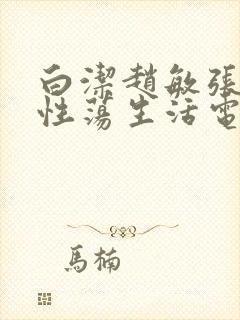 白潔趙敏張
性蕩生活電
馬楠